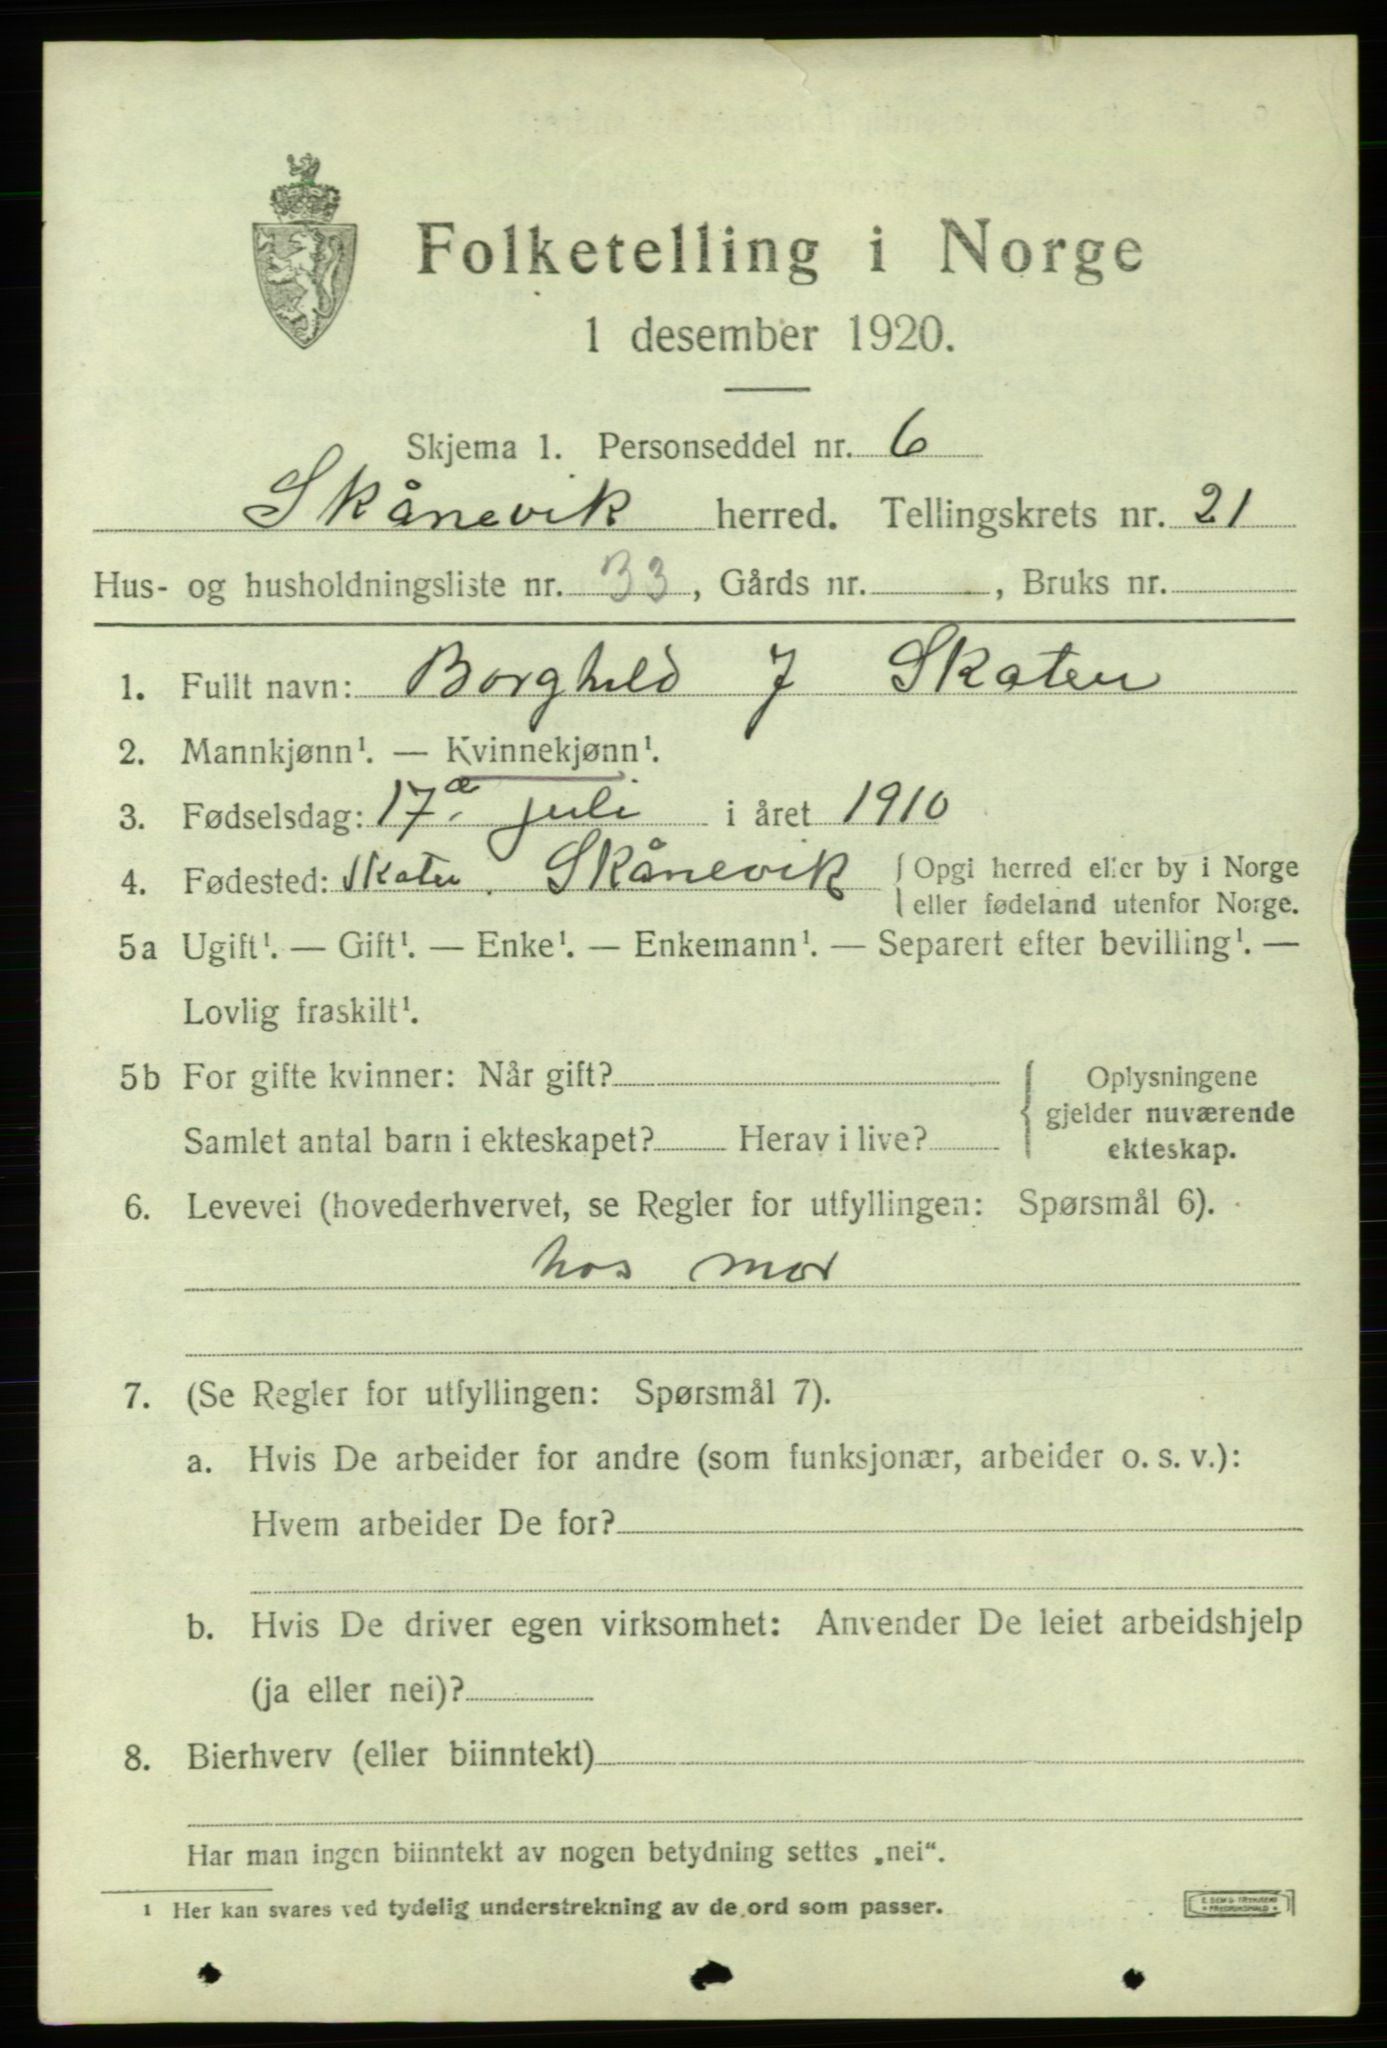 Folketelling i Norge
1 desember 1920.
Skjema 1. Personseddel nr. 6
Skånevik herred. Tellingskrets nr. 21
Hus- og husholdningsliste nr. 33, Gårds nr. , Bruks nr.
1. Fullt navn: Borghild J Skaten
2. Mannkjønn¹. — Kvinnekjønn¹.
3. Fødselsdag: 17de juli i året 1910
4. Fødested: Skaten. Skånevik { Opgi herred eller by i Norge
eller fødeland utenfor Norge.
5a Ugift¹. — Gift¹. — Enke¹. — Enkemann¹. — Separert efter bevilling¹. —
Lovlig fraskilt¹.
5b For gifte kvinner: Når gift? { Oplysningene
gjelder nuværende
Samlet antal barn i ekteskapet? Herav i live? ekteskap.
6. Levevei (hovederhvervet, se Regler for utfyllingen: Spørsmål 6).
hos mor
7. (Se Regler for utfyllingen: Spørsmål 7).
a. Hvis De arbeider for andre (som funksjonær, arbeider o. s. v.):
Hvem arbeider De for?
b. Hvis De driver egen virksomhet: Anvender De leiet arbeidshjelp
(ja eller nei)?
8. Bierhverv (eller biinntekt)
Har man ingen biinntekt av nogen betydning settes „nei“.
¹ Her kan svares ved tydelig understrekning av de ord som passer.